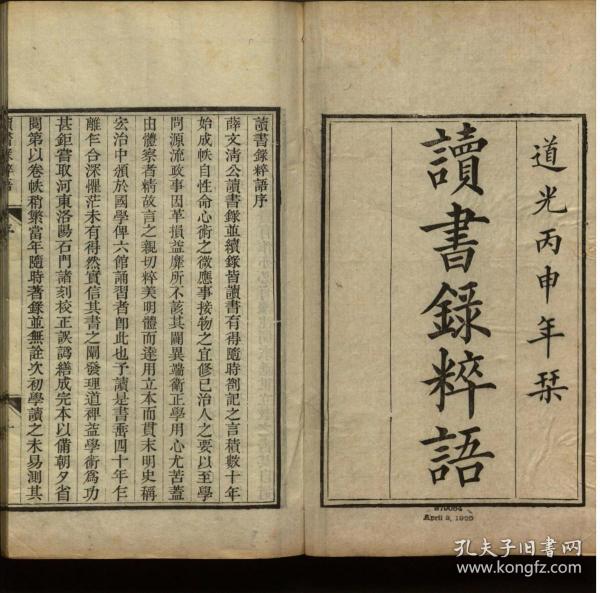 道光丙申年栞
讀書錄粹語
讀書錄粹語序
薛文清公讀書錄並續錄皆讀書有得隨時劄記之言積數十年
始成帙自性命心術之微應事接物之宜修已治人之要以至學
問源流政事因革損益靡所不該其闢異端衛正學用心尤苦蓋
由體察者精故言之親切粹美明體而達用立本而貫末明史稱
宏治中頒於國學俾六館誦習者卽此也予讀是書垂四十年乍
離乍合深懼茫未有得然實信其書之闡發理道裨益學術爲功
甚鉅嘗取河東洛陽石門諸刻校正誤譌繕成完本以備朝夕省
閱第以卷帙稍繁當年隨時著錄並無詮次初學讀之未易測其
讀書錄粹語
序
一
April 3, 1920
孔夫子旧书网
www.kongfz.com